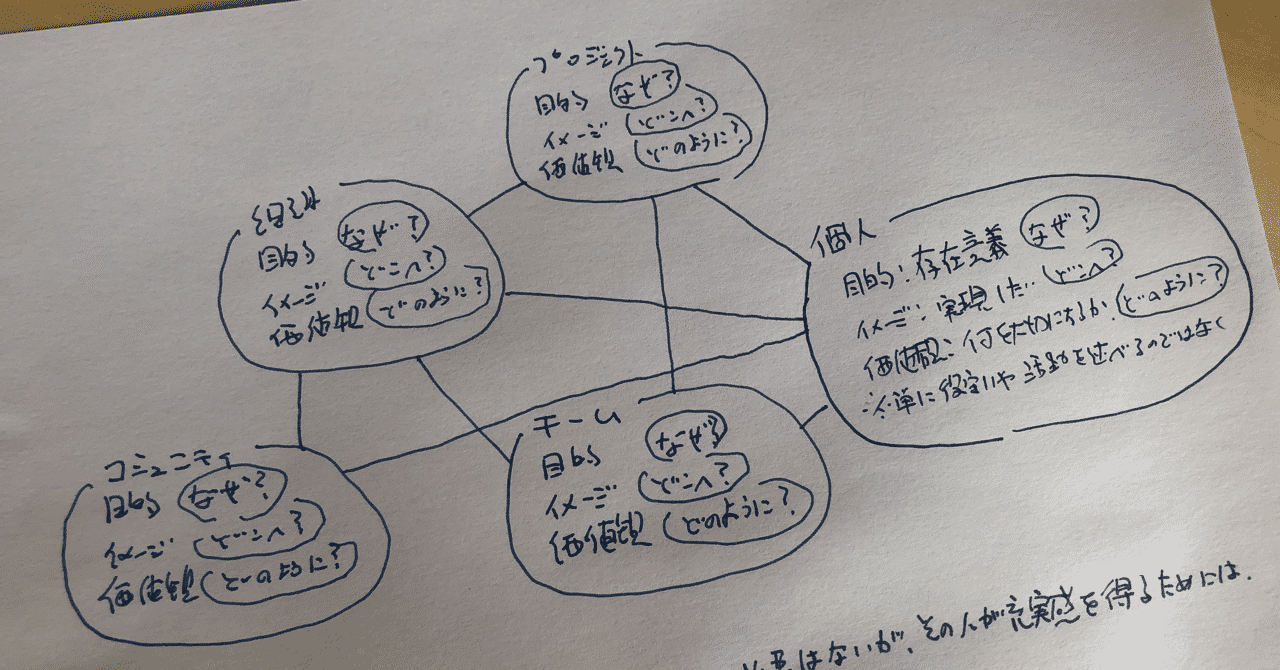 プロジェクト
目的 なぜ?
イメージ どこへ?
価値観 どのように?
組織
目的 なぜ?
イメージ どこへ?
価値観 どのように?
個人
目的:存在意義 なぜ?
イメージ:実現した‥ どこへ?
価値観:何を大切にするか. どのように?
※単に役割や活動を述べるのではなく
チーム
目的 なぜ?
イメージ どこへ?
価値観 どのように?
コミュニティ
目的 なぜ?
イメージ どこへ?
価値観 どのように?
はないが、その人が充実感を得るためには、